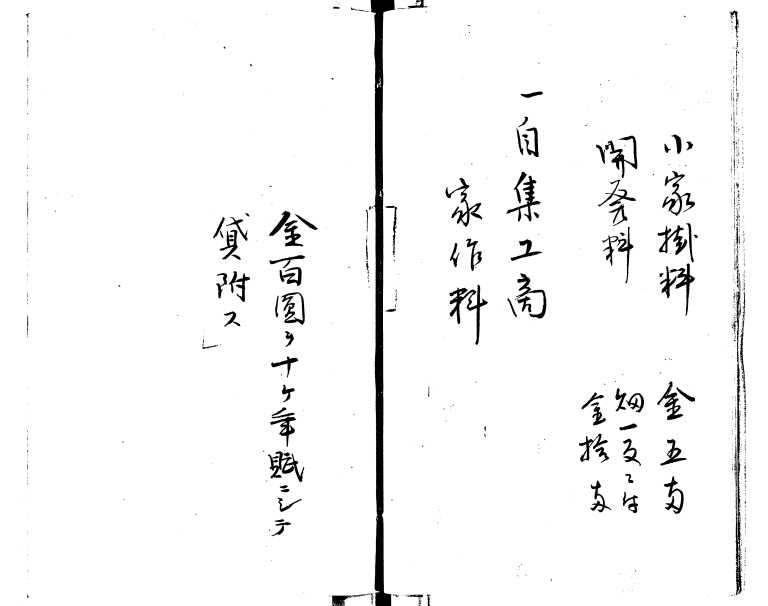 小家掛料 金五両
開発料 畑一反ニ付
金拾両
一自集工商
家作料
金百圓ヲ十ケ年賦ニシテ
貸附ス」